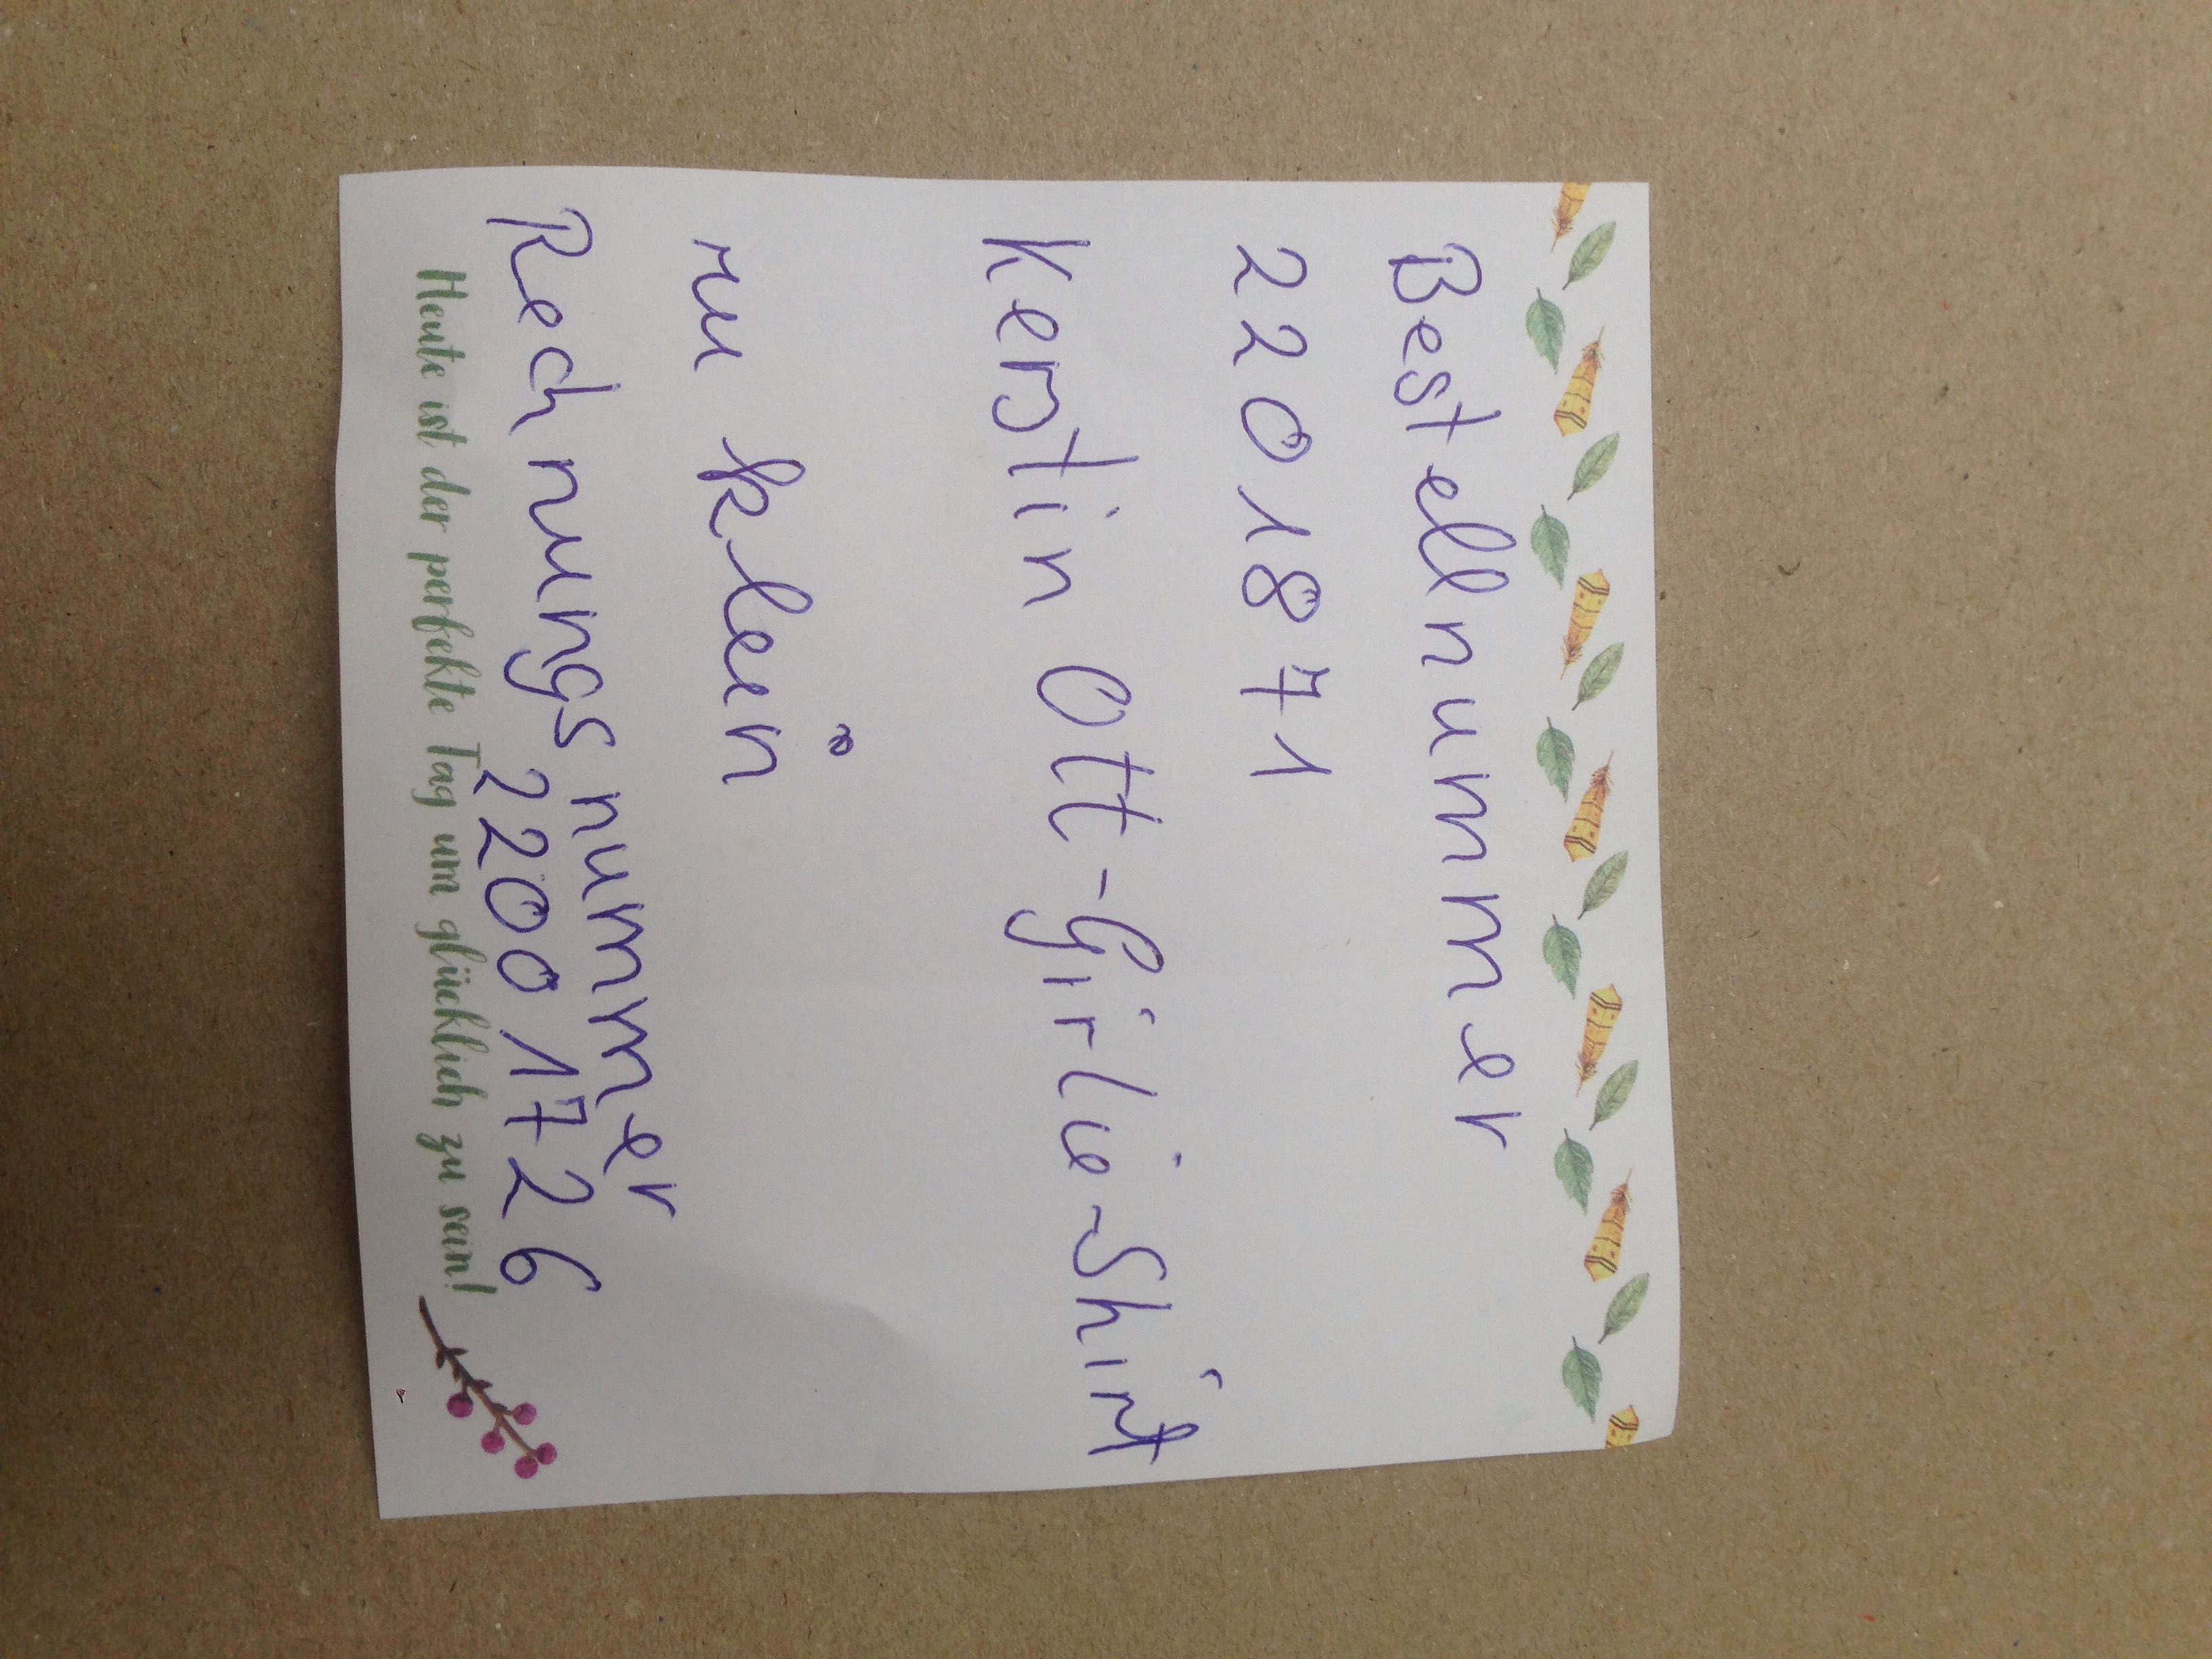 Bestellnummer
2201871
Kerstin Ott-Girlie-Shirt
zu klein
Rechnungsnummer
2200 1726
Heute ist der perfekte Tag um glücklich zu sein!